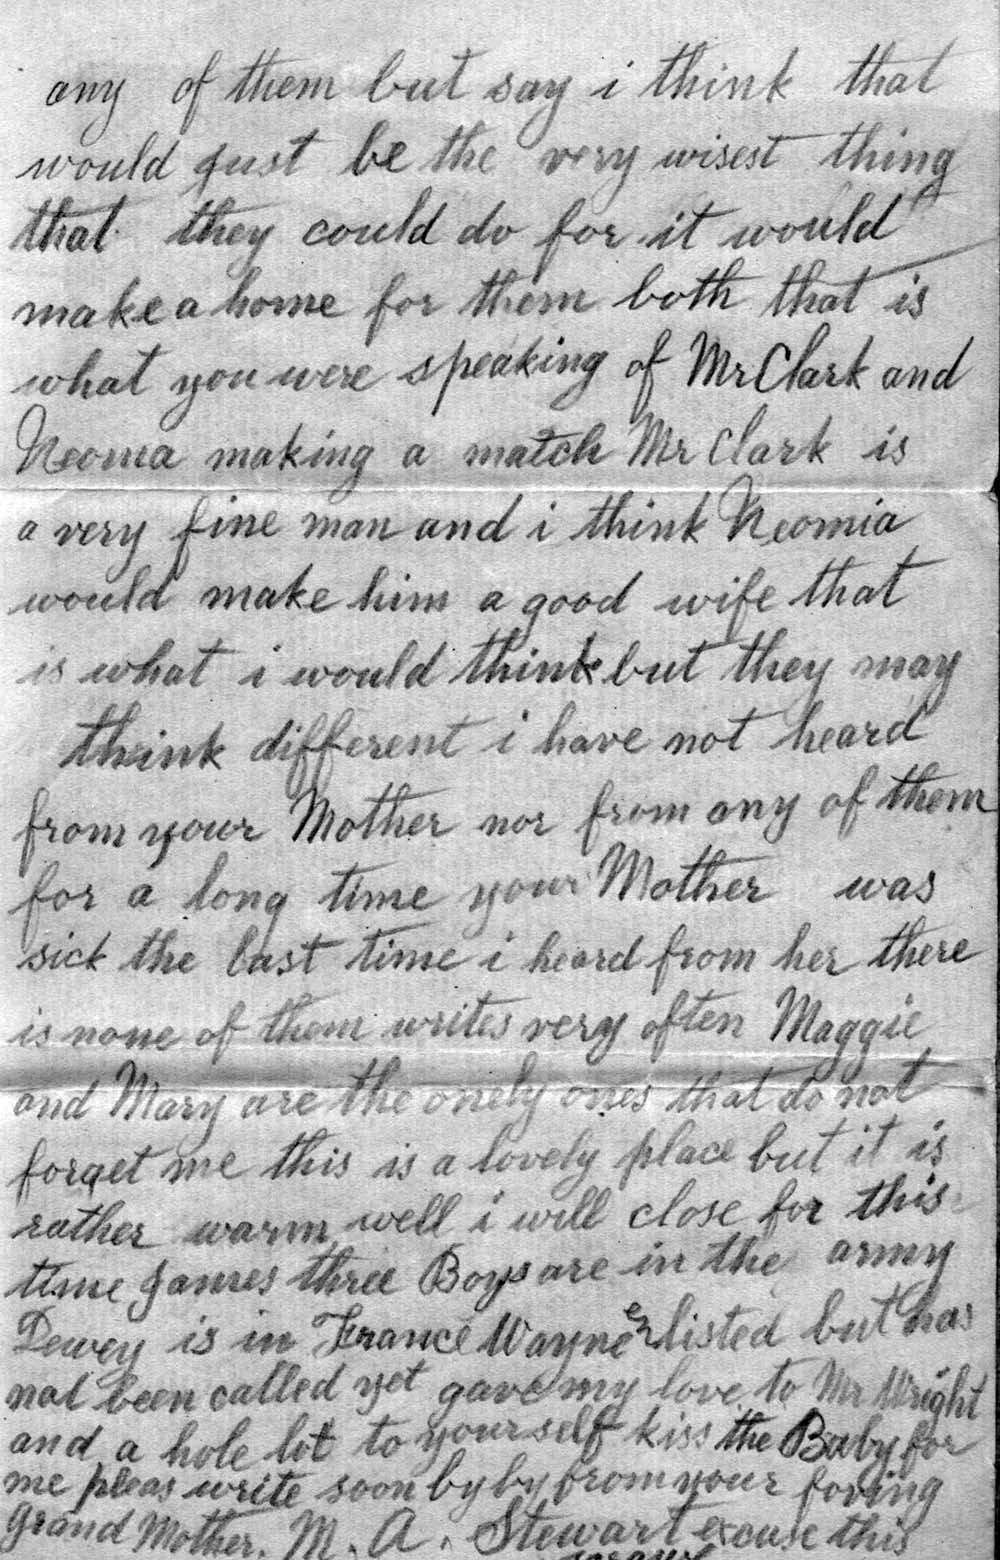 any of them but say i think that
would just be the very wisest thing
that they could do for it would
make a home for them both that is
what you were speaking of Mr Clark and
Neoma making a match Mr Clark is
a very fine man and i think Neomia
would make him a good wife that
is what i would think but they may
think different i have not heard
from your Mother nor from any of them
for a long time your Mother was
sick the last time i heard from her there
is none of them writes very often Maggie
and Mary are the onely ones that do not
forget me this is a lovely place but it is
rather warm well i will close for this
time James three Boys are in the army
Dewey is in France Wayne enlisted but has
not been called yet gave my love to Mr Wright
and a hole lot to yourself kiss the Baby for
me pleas write soon by by from your loving
grand Mother. M. A. Stewart excuse this